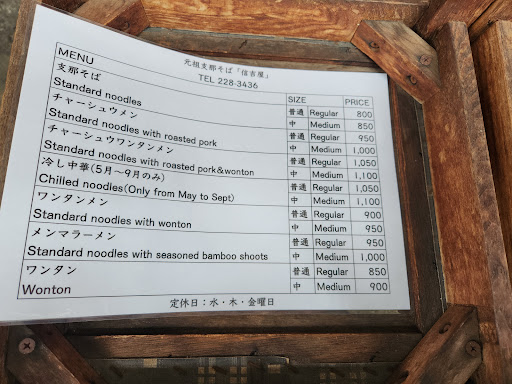 元祖支那そば「信吉屋」
TEL 228-3436
MENU SIZE PRICE
支那そば 普通 Regular 800
Standard noodles 中 Medium 850
チャーシュウメン 普通 Regular 950
Standard noodles with roasted pork 中 Medium 1,000
チャーシュウワンタンメン 普通 Regular 1,050
Standard noodles with roasted pork&wonton 中 Medium 1,100
冷し中華(5月～9月のみ) 普通 Regular 1,050
Chilled noodles(Only from May to Sept) 中 Medium 1,100
ワンタンメン 普通 Regular 900
Standard noodles with wonton 中 Medium 950
メンマラーメン 普通 Regular 950
Standard noodles with seasoned bamboo shoots 中 Medium 1,000
ワンタン 普通 Regular 850
Wonton 中 Medium 900
定休日：水・木・金曜日